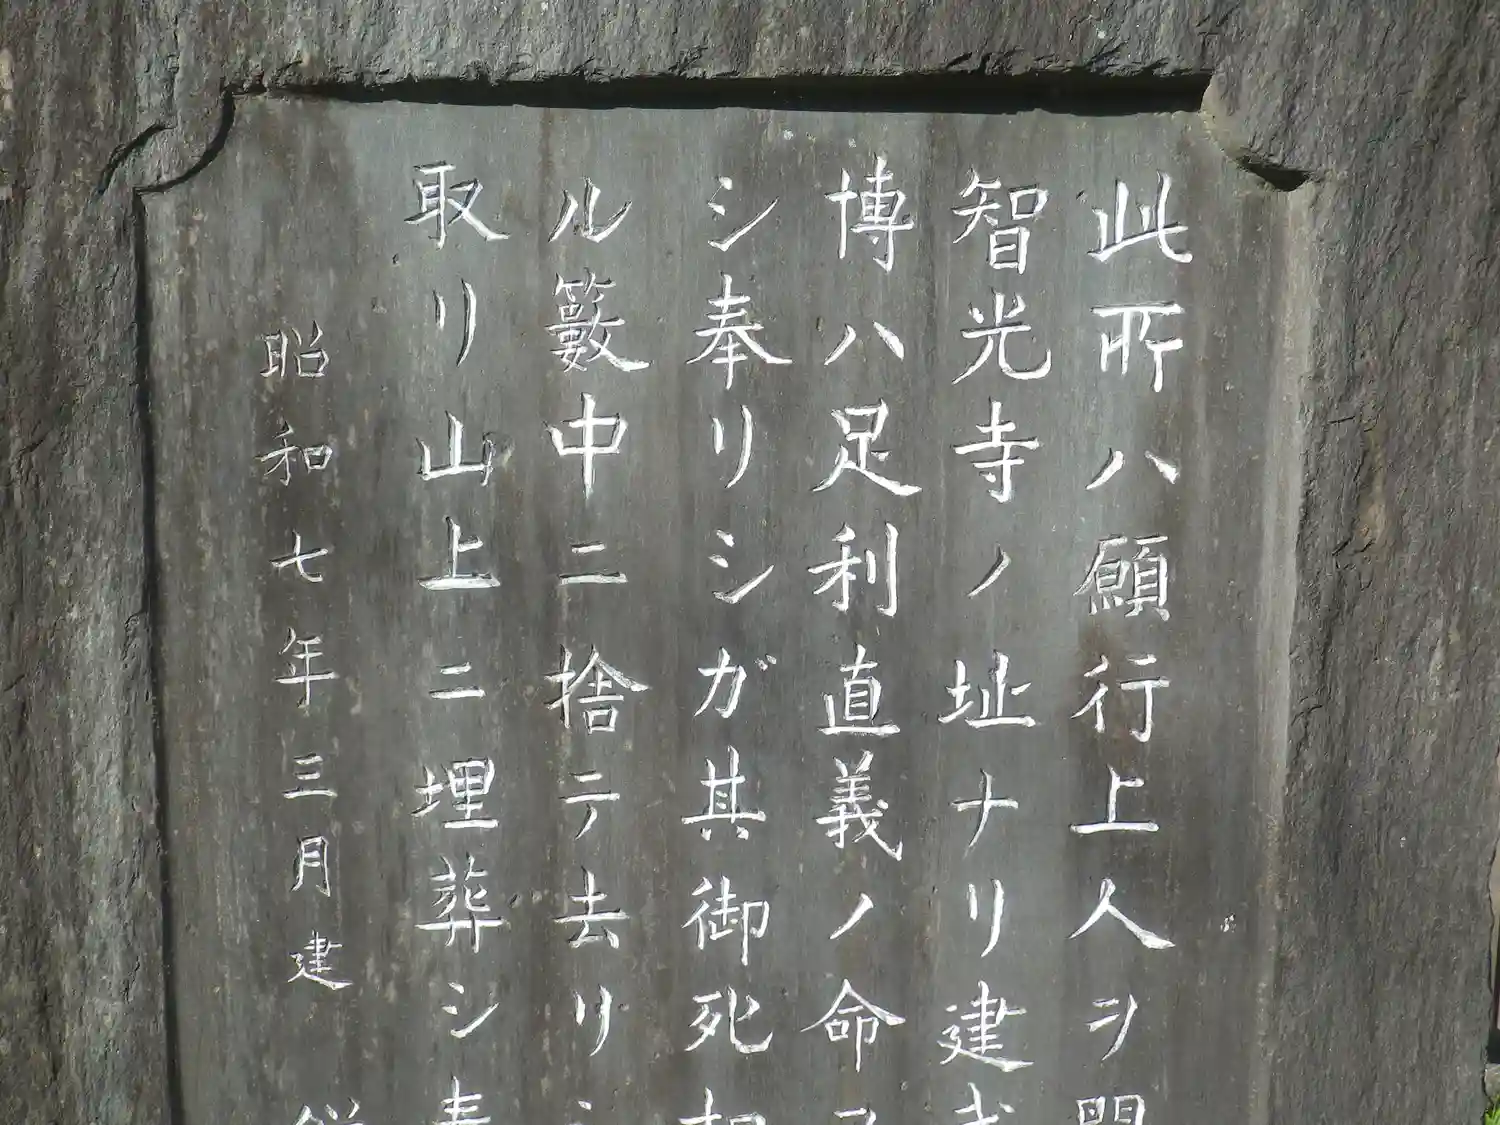 此所ハ願行上人ヲ開
智光寺ノ址ナリ建武
博ハ足利直義ノ命ヲ
シ奉リシガ其御死相
ル籔中ニ捨テ去リシ
取リ山上ニ埋葬シ奉
昭和七年三月建